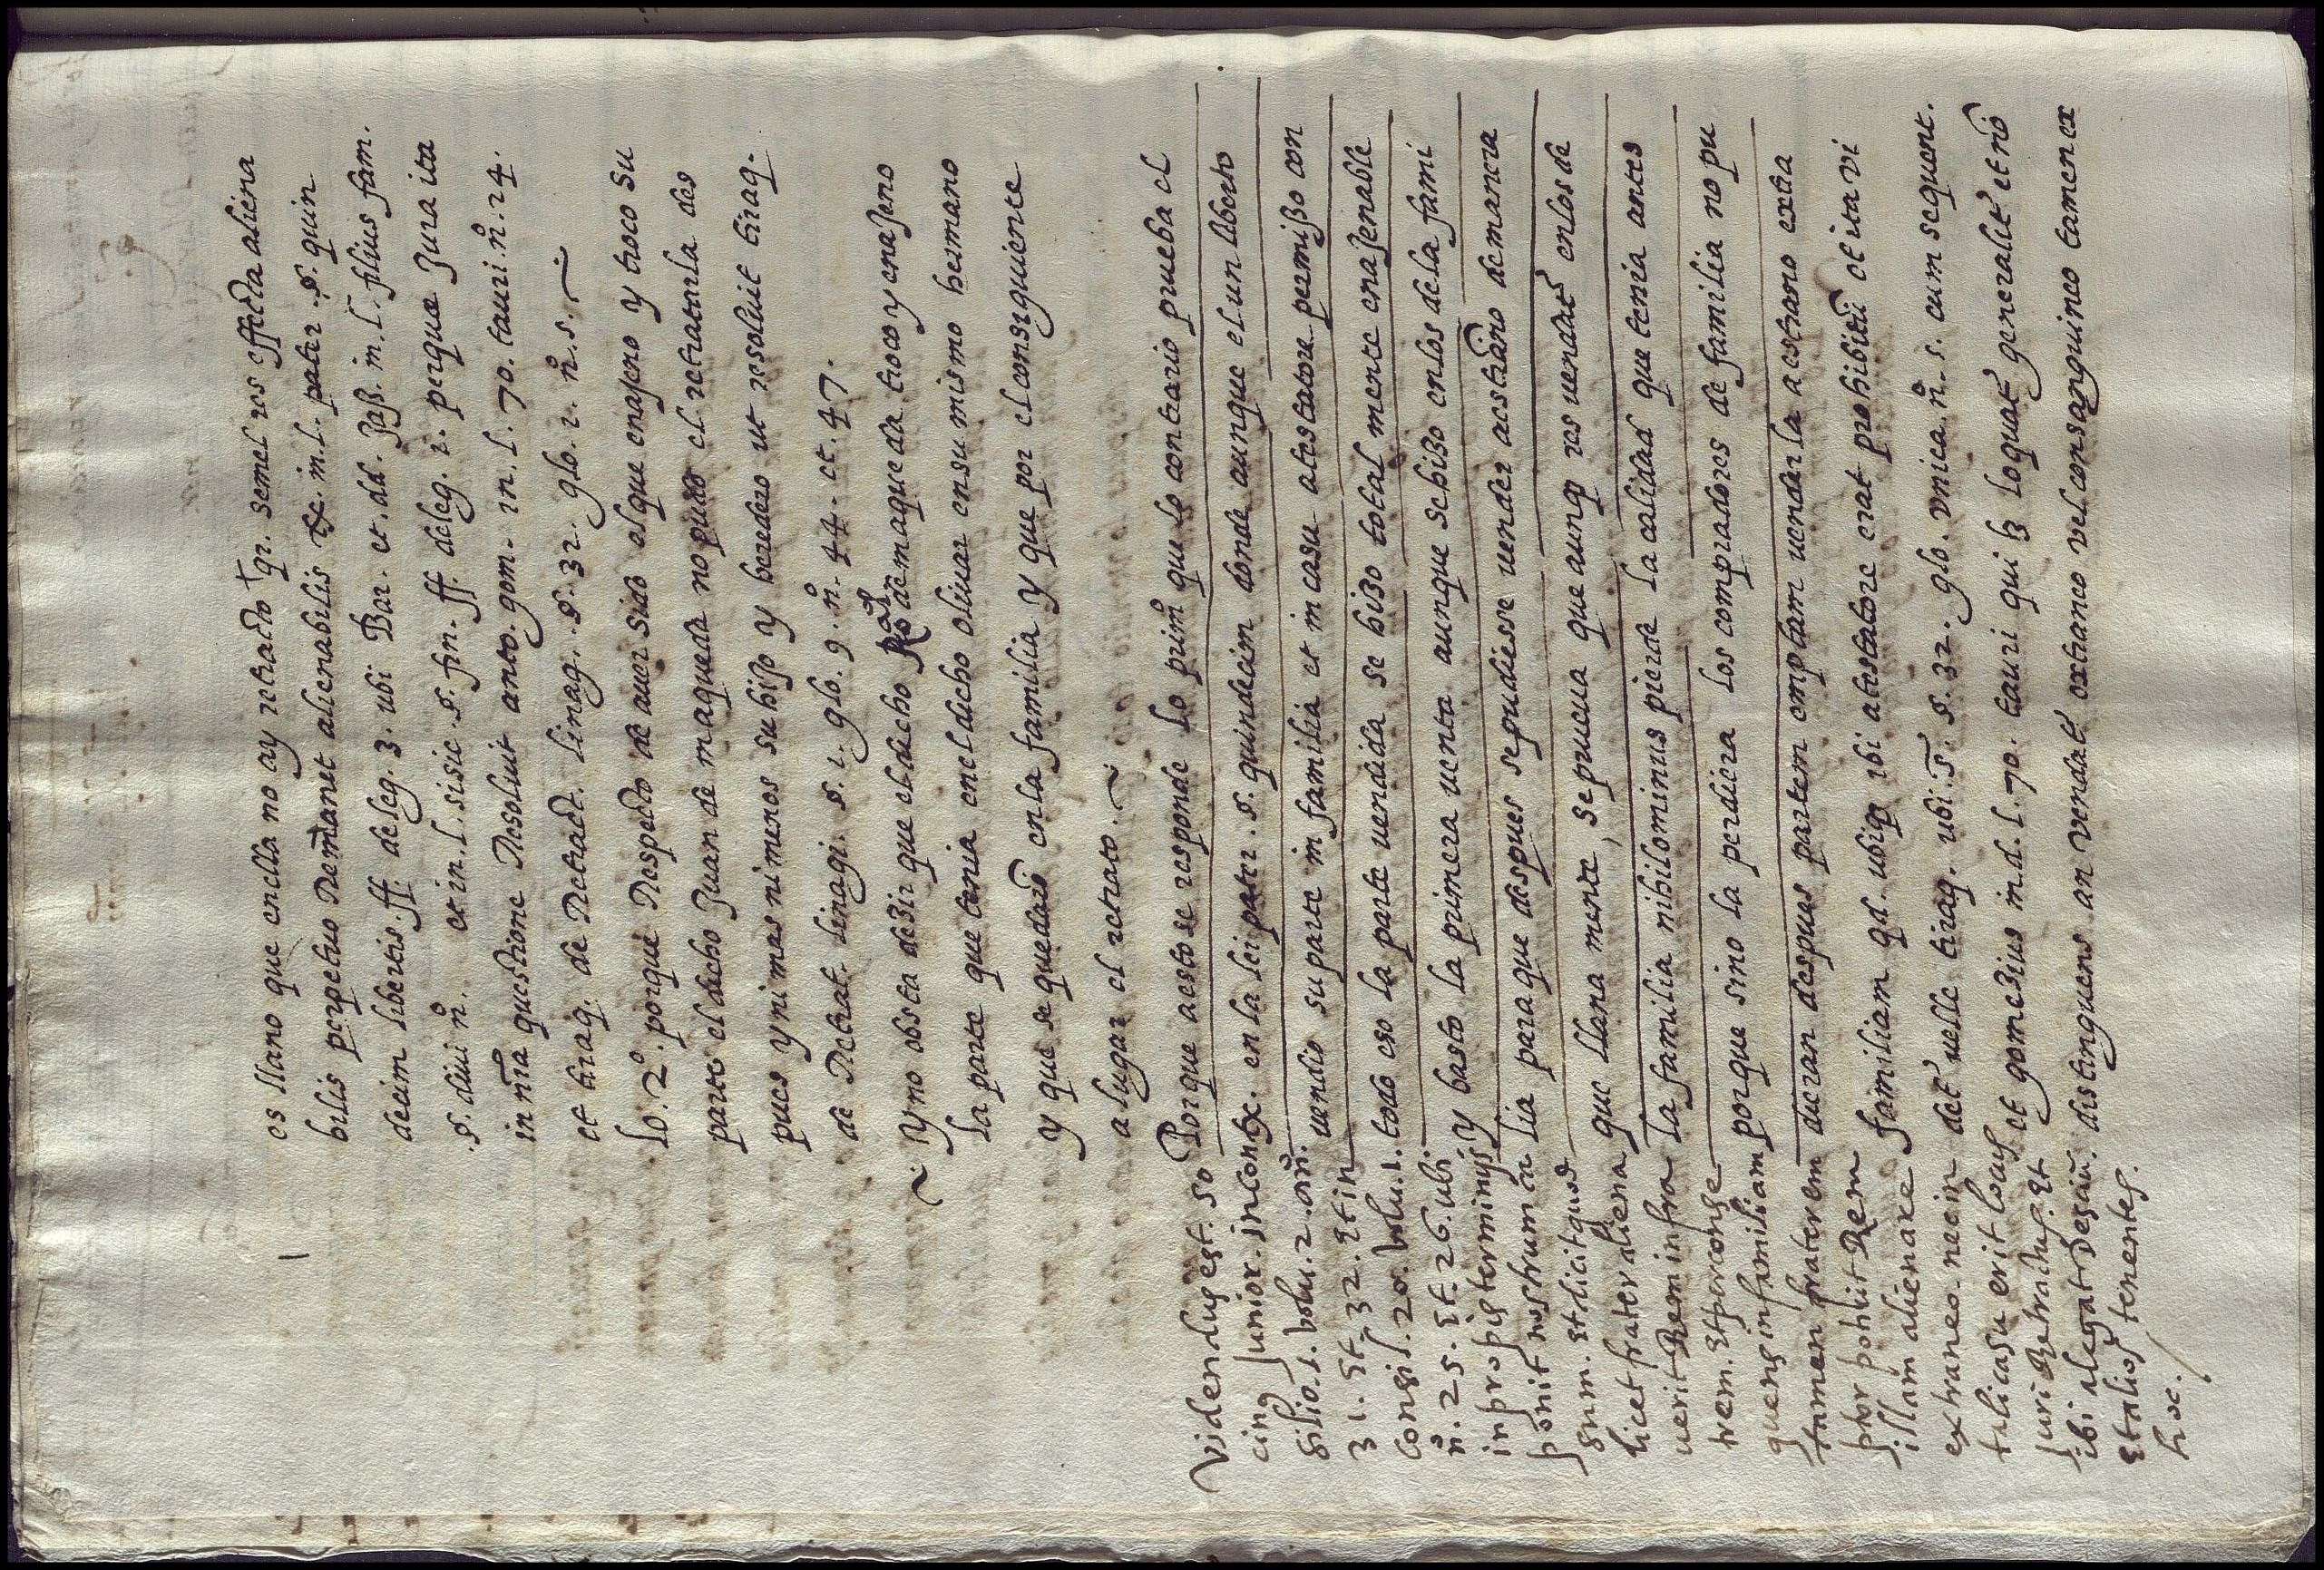 es llano que en ella no ay retracto qr. semel res effecta aliena
bilis perpetuo Remanet alienabilis tx. in. l. pater .§. quin
decim libertis. ff. de leg. 3. ubi Bar. et. dd. Jaß. in. l. filius fam.
.§. diui nº. et in. l. sisic .§. fin. ff. de leg. 1. perque Jura ita
in nr̃a questione Resoluit anto. gom. in. l. 70. tauri. nº. 24.
et tiraq. de Retract. linag. .§. 32. glo. 1. nº. 5.
lo. 2º. porque Respecto de auer sido el que enajeno y troco su
parte el dicho Juan de maqueda no pudo el retratarla des
pues y ni mas ni menos su hijo y heredero ut resoluit tiraq.
de Retrat. linagi. §. 1. glo. 9. nº. 44. et. 47.
y no obsta dezir que el dicho Rº de maqueda troco y enajeno
la parte que tenia en el dicho oliuar en su mismo hermano
y que se quedaro en la familia y que por el consiguiente
a lugar el retrato.
Porque a esto se responde lo primº que lo contrario prueba el
tx. en la lei pater .§. quindecim donde aunque el un liberto
uendio su parte in familia et in casu a testatore permißo con
todo eso la parte uendida se hizo totalmente enajenable
y basto la primera uenta aunque se hizo en los de la fami
lia para que despues se pudiesse uender a estraño de manera
que llana mente, se prueua que aunq res uendat en los de
la familia nihilominus pierde la calidad que tenia antes
porque sino la perdiera los compradores de familia no pu
dieran despues partem emptam uenderla a estrano extra
familiam qd. ubiq ibi a testatore erat prohibitũ et ita vi
det uelle tiraq. ubi. s̃. §. 32. glo. vnica. nº. 5. cum sequent.
et gomezius in. d. l. 70. tauri qui hȝ loquat generalit et nõ
distinguens an vendat extraneo vel consanguineo tamen ex
Videndus est. So
cinus Junior. in con
silio. 1. bolu. 2.
31. Et. 32. Et in
Consil. 20. bolu. 1.
nº. 25. Et. 26. ubi
in propijs terminis
ponit nostrum ca
sum. Et dicit quod
licet frater aliena
uerit Rem in fra
trem. Et sic conse
quens in familiam
tamen fratrem
ptor potuit Rem
illam alienare
extraneo. nec in
tali casu erit locus
Juri Retractus. Et
ibi alegat Deciũ.
Et alios tenentes
hoc.